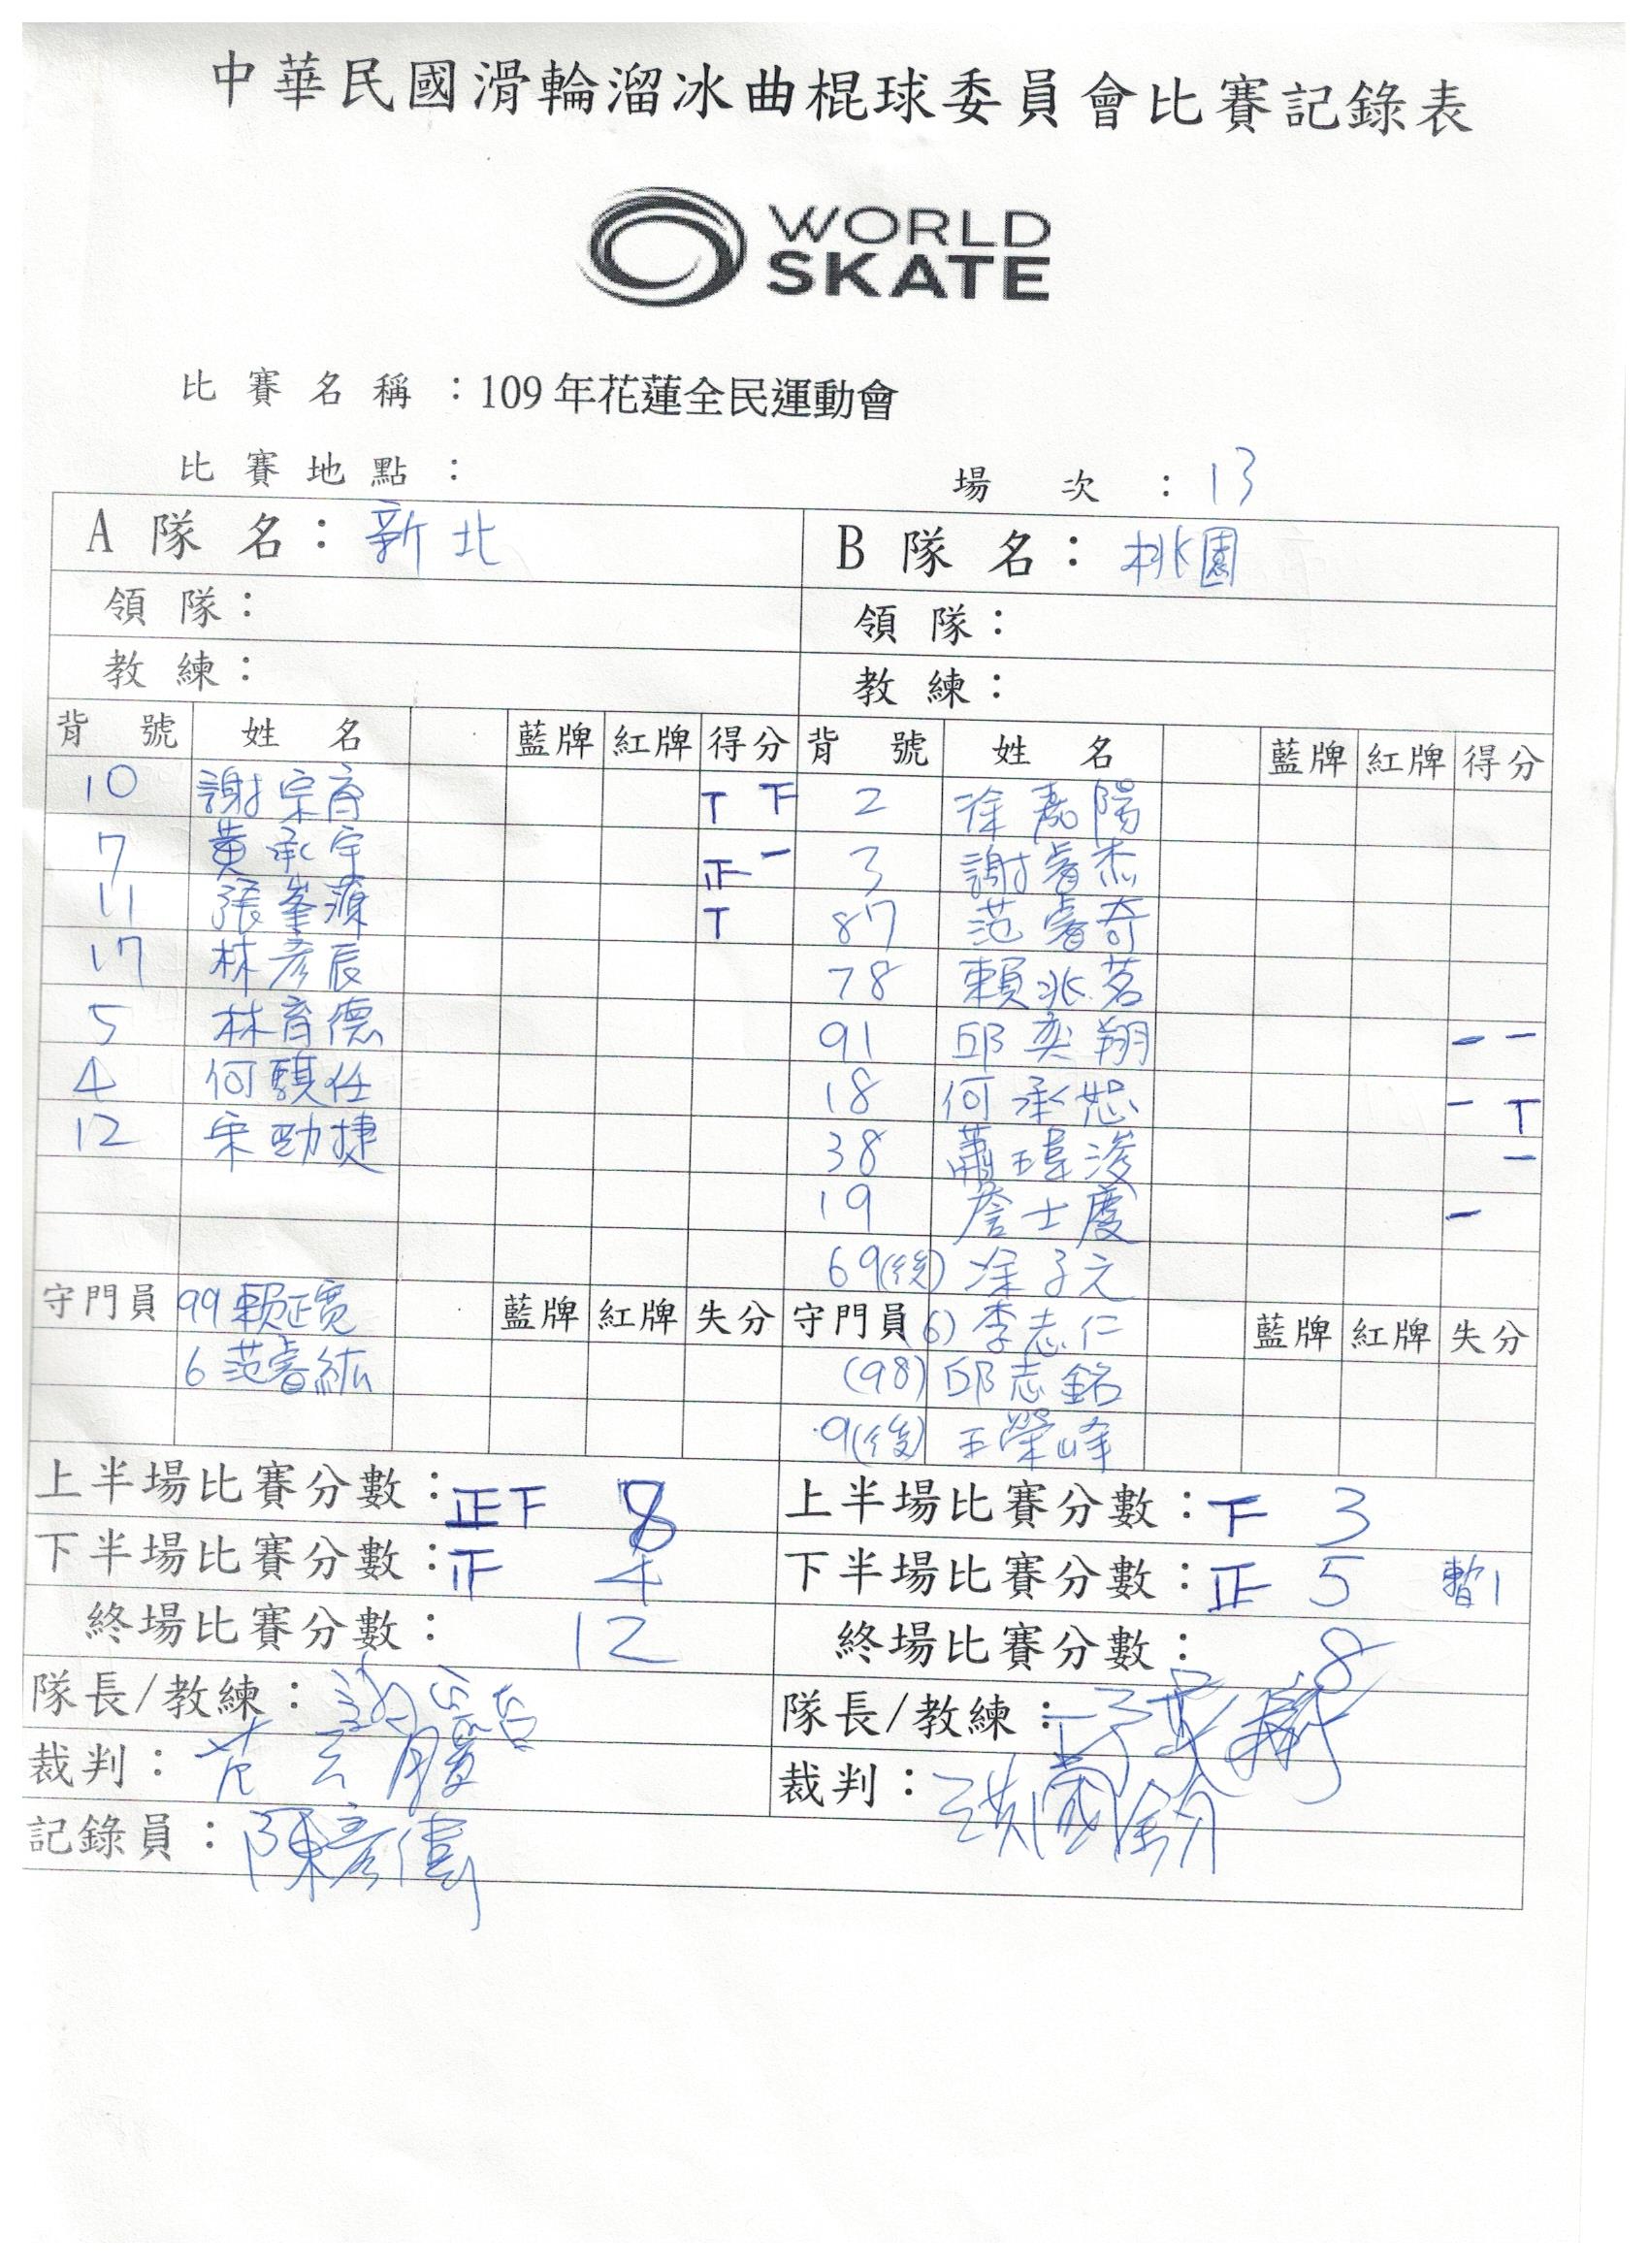 中華民國滑輪溜冰曲棍球委員會比賽記錄表
WORLD
SKATE
比賽名稱：109年花蓮全民運動會
比賽地點：
場次：13
A 隊名：新北 B 隊名：桃園
領隊： 領隊：
教練： 教練：
背號 姓名 藍牌 紅牌 得分 背號 姓名 藍牌 紅牌 得分
10 謝宗育 T 下 2 徐嘉陽
7 黃承宇 正 一 3 謝睿杰
11 張峯源 T 87 范睿奇
17 林彥辰 78 賴兆茗
5 林育德 91 邱奕翔 一 一
4 何騏任 18 何承恕 一 T
12 宋勁捷 38 蕭瑋浚 一
19 詹士慶 一
69(後) 涂子元
守門員 99 賴正寬 藍牌 紅牌 失分 守門員 (6) 李志仁 藍牌 紅牌 失分
6 范睿紘 (98) 邱志銘
9(後) 王榮峰
上半場比賽分數：正下 8 上半場比賽分數：下 3
下半場比賽分數：正 4 下半場比賽分數：正 5 暫1
終場比賽分數：12 終場比賽分數：8
隊長/教練： 隊長/教練：
裁判：范云騰 裁判：
記錄員：陳彥儒